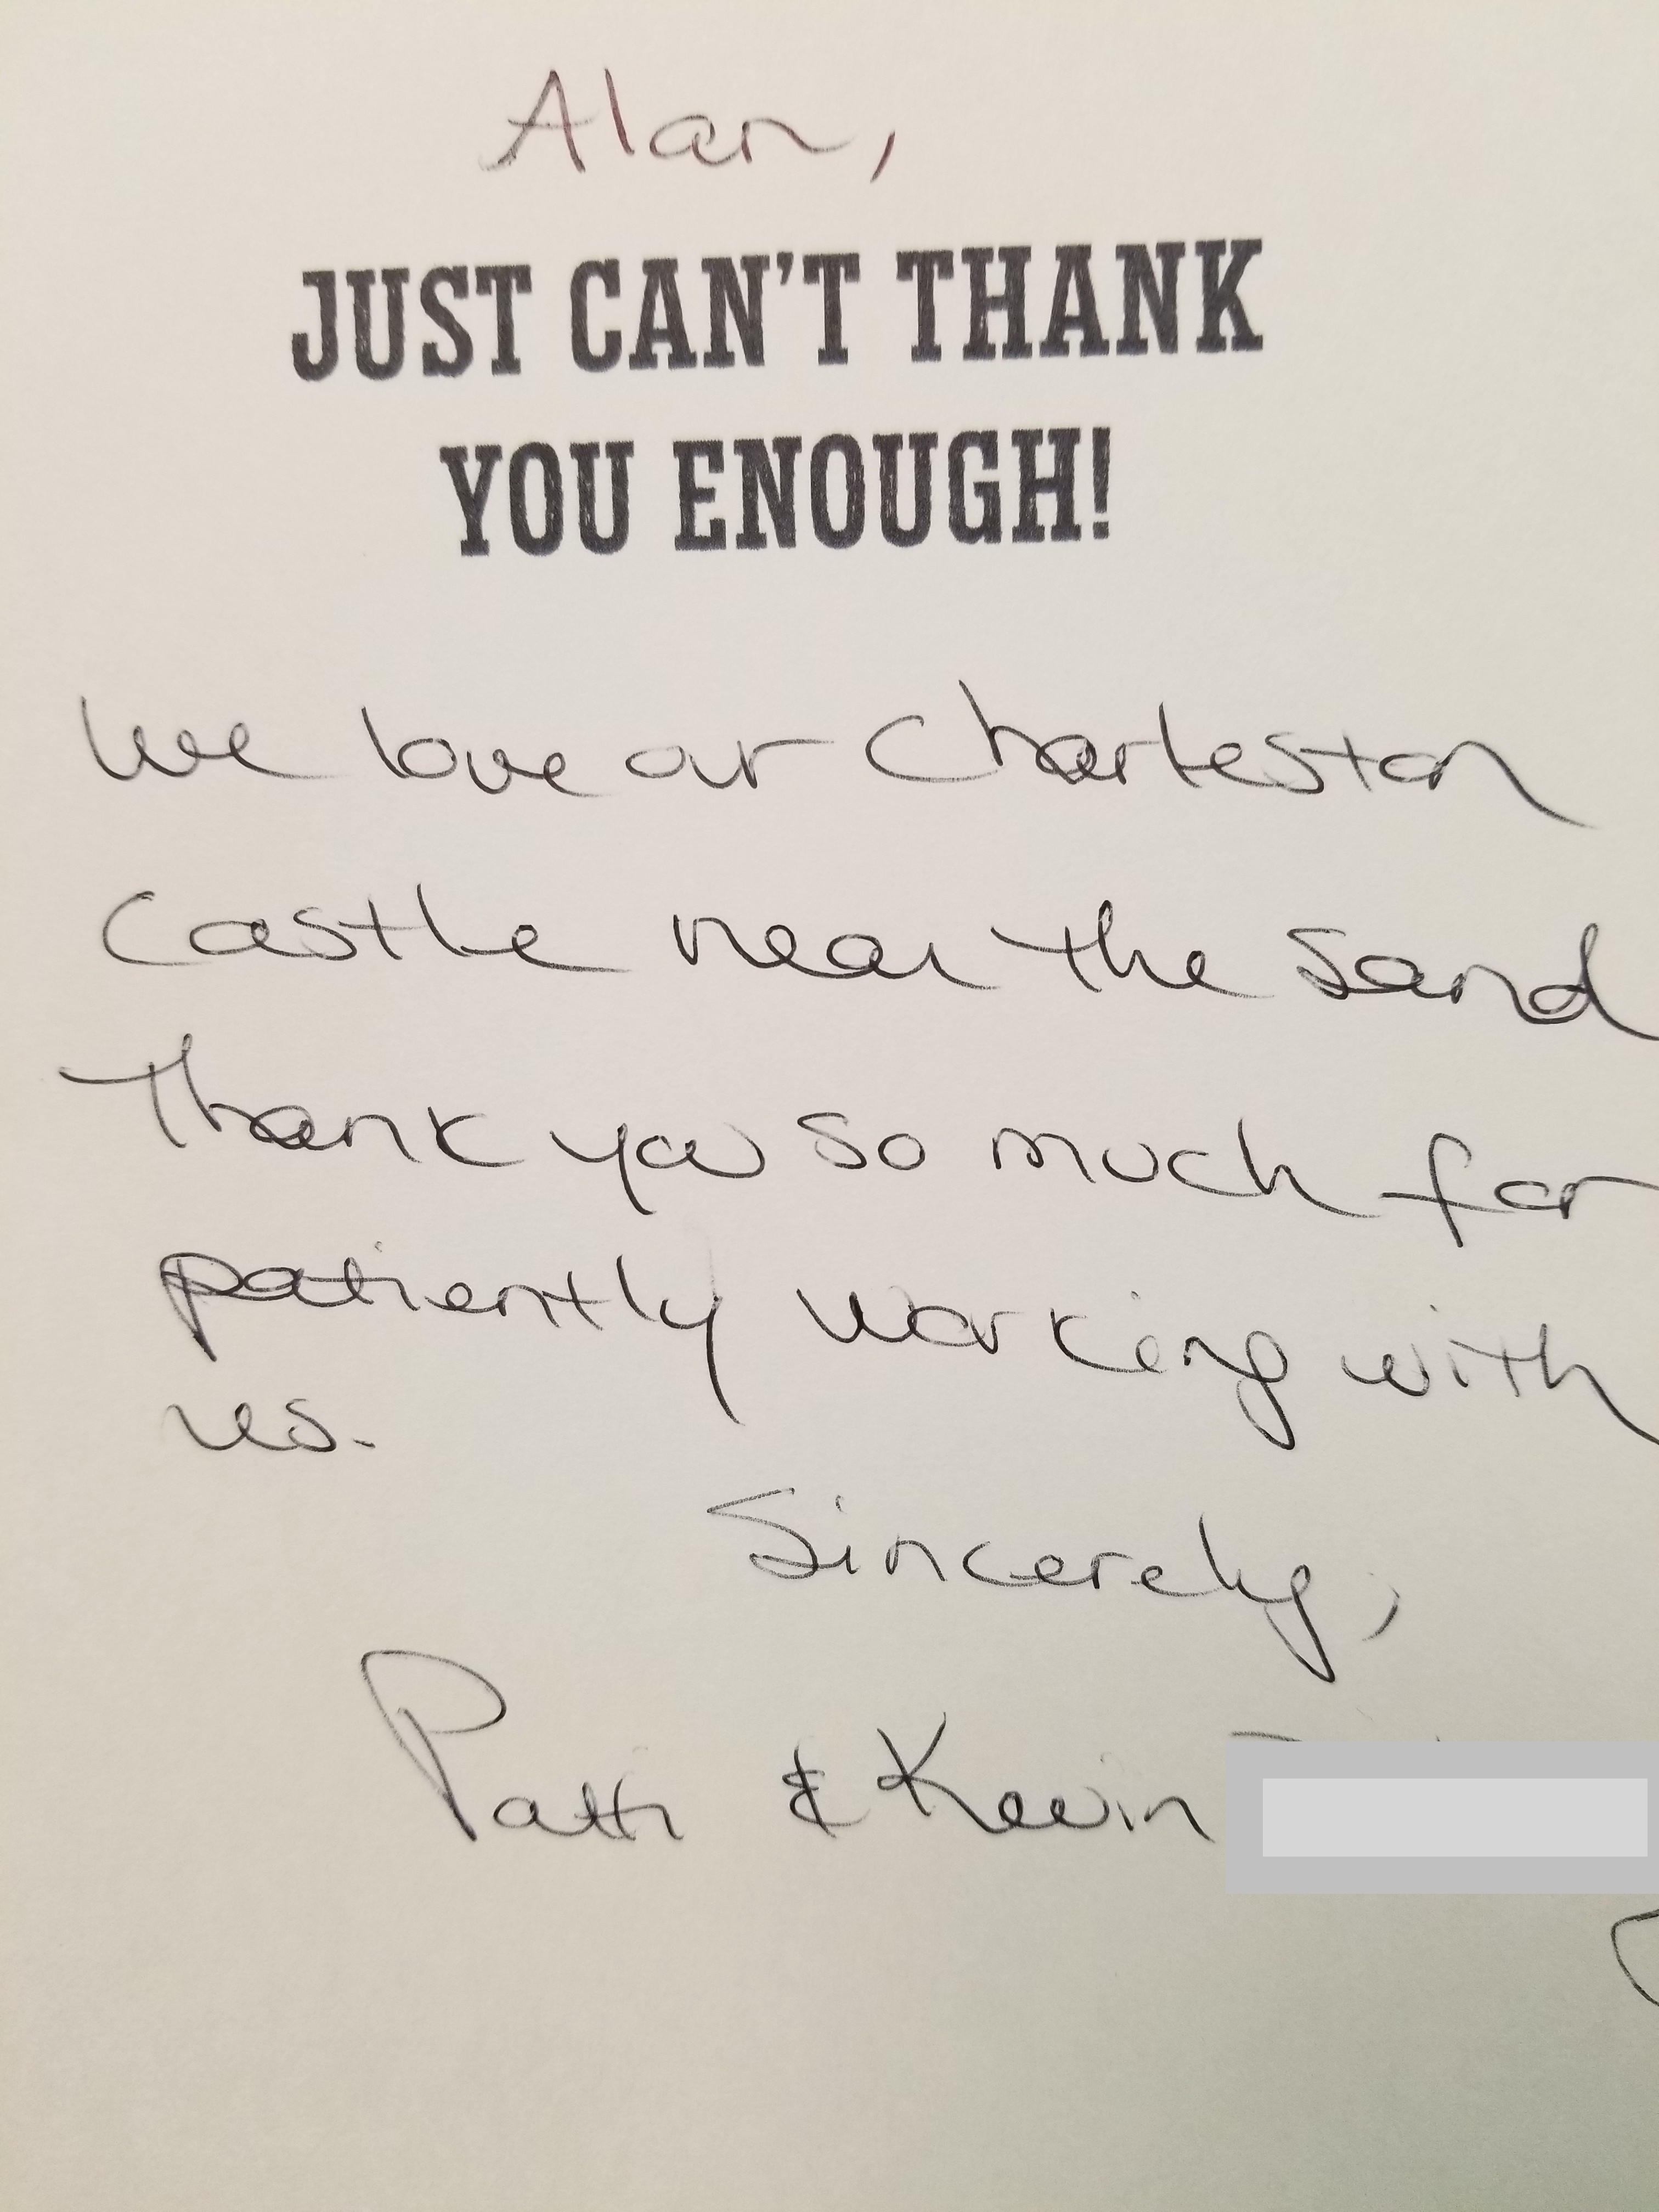 Alan,
JUST CAN'T THANK
YOU ENOUGH!
We love our Charleston
Castle near the Sand
Thank you so much for
patiently working with
us.
Sincerely,
Patti & Kevin